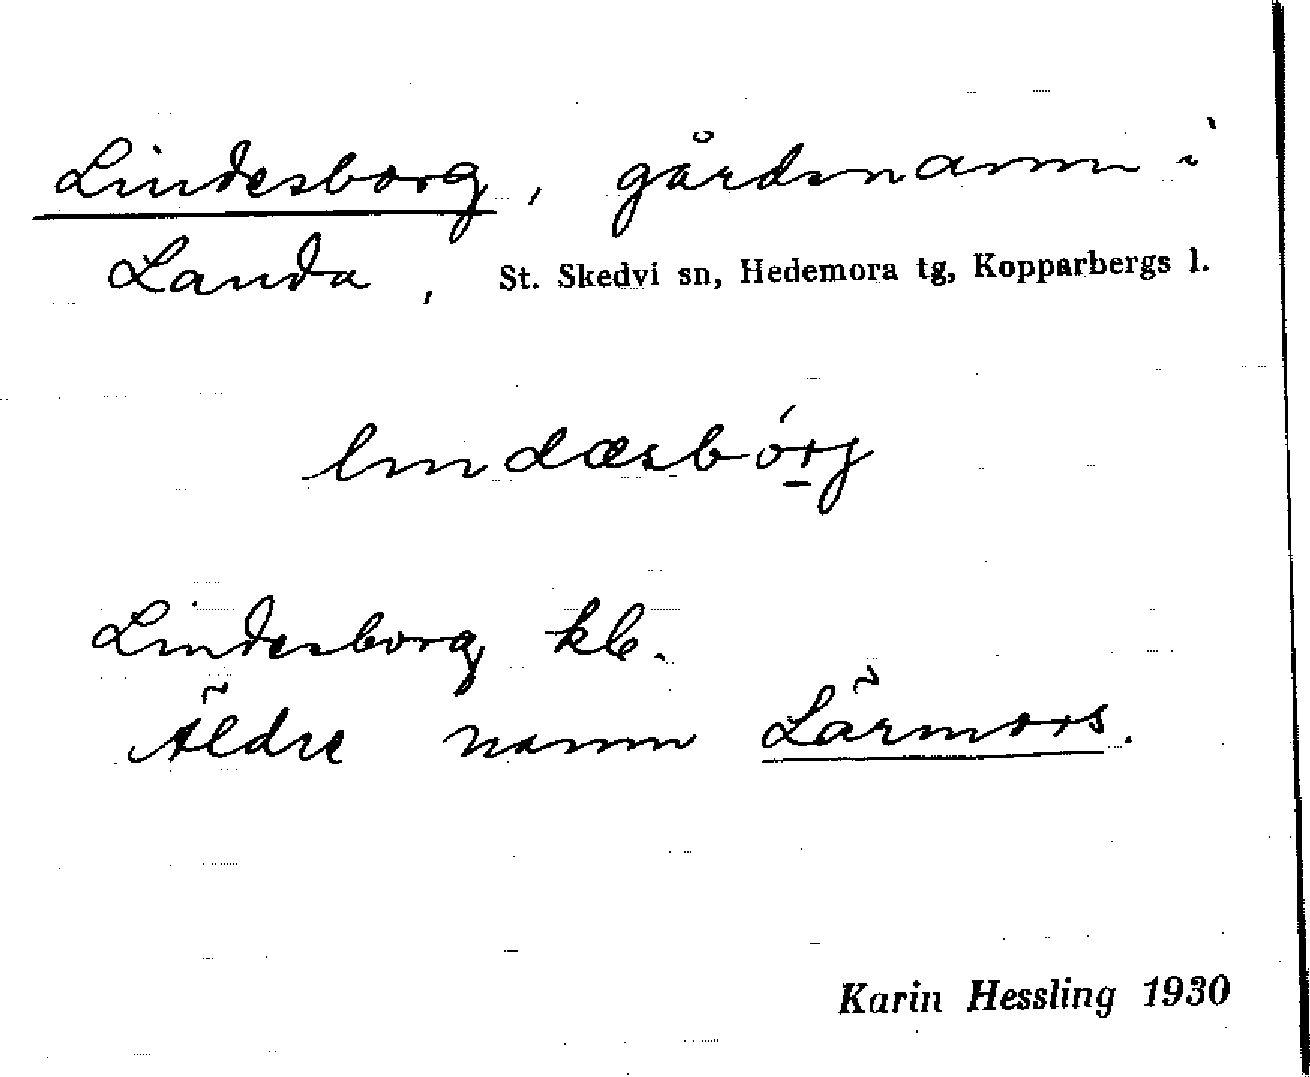 Lindesborg, gårdsnamn i
Landa, St. Skedvi sn, Hedemora tg, Kopparbergs l.
lindæsbórj
Lindesborg kb.
Äldre namn Lärmors.
Karin Hessling 1930